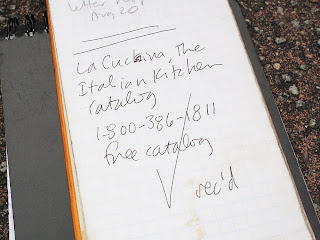 letter
Aug 20
La Cucina, The
Italian Kitchen
catalog
1-800-386-1811
free catalog
rec'd